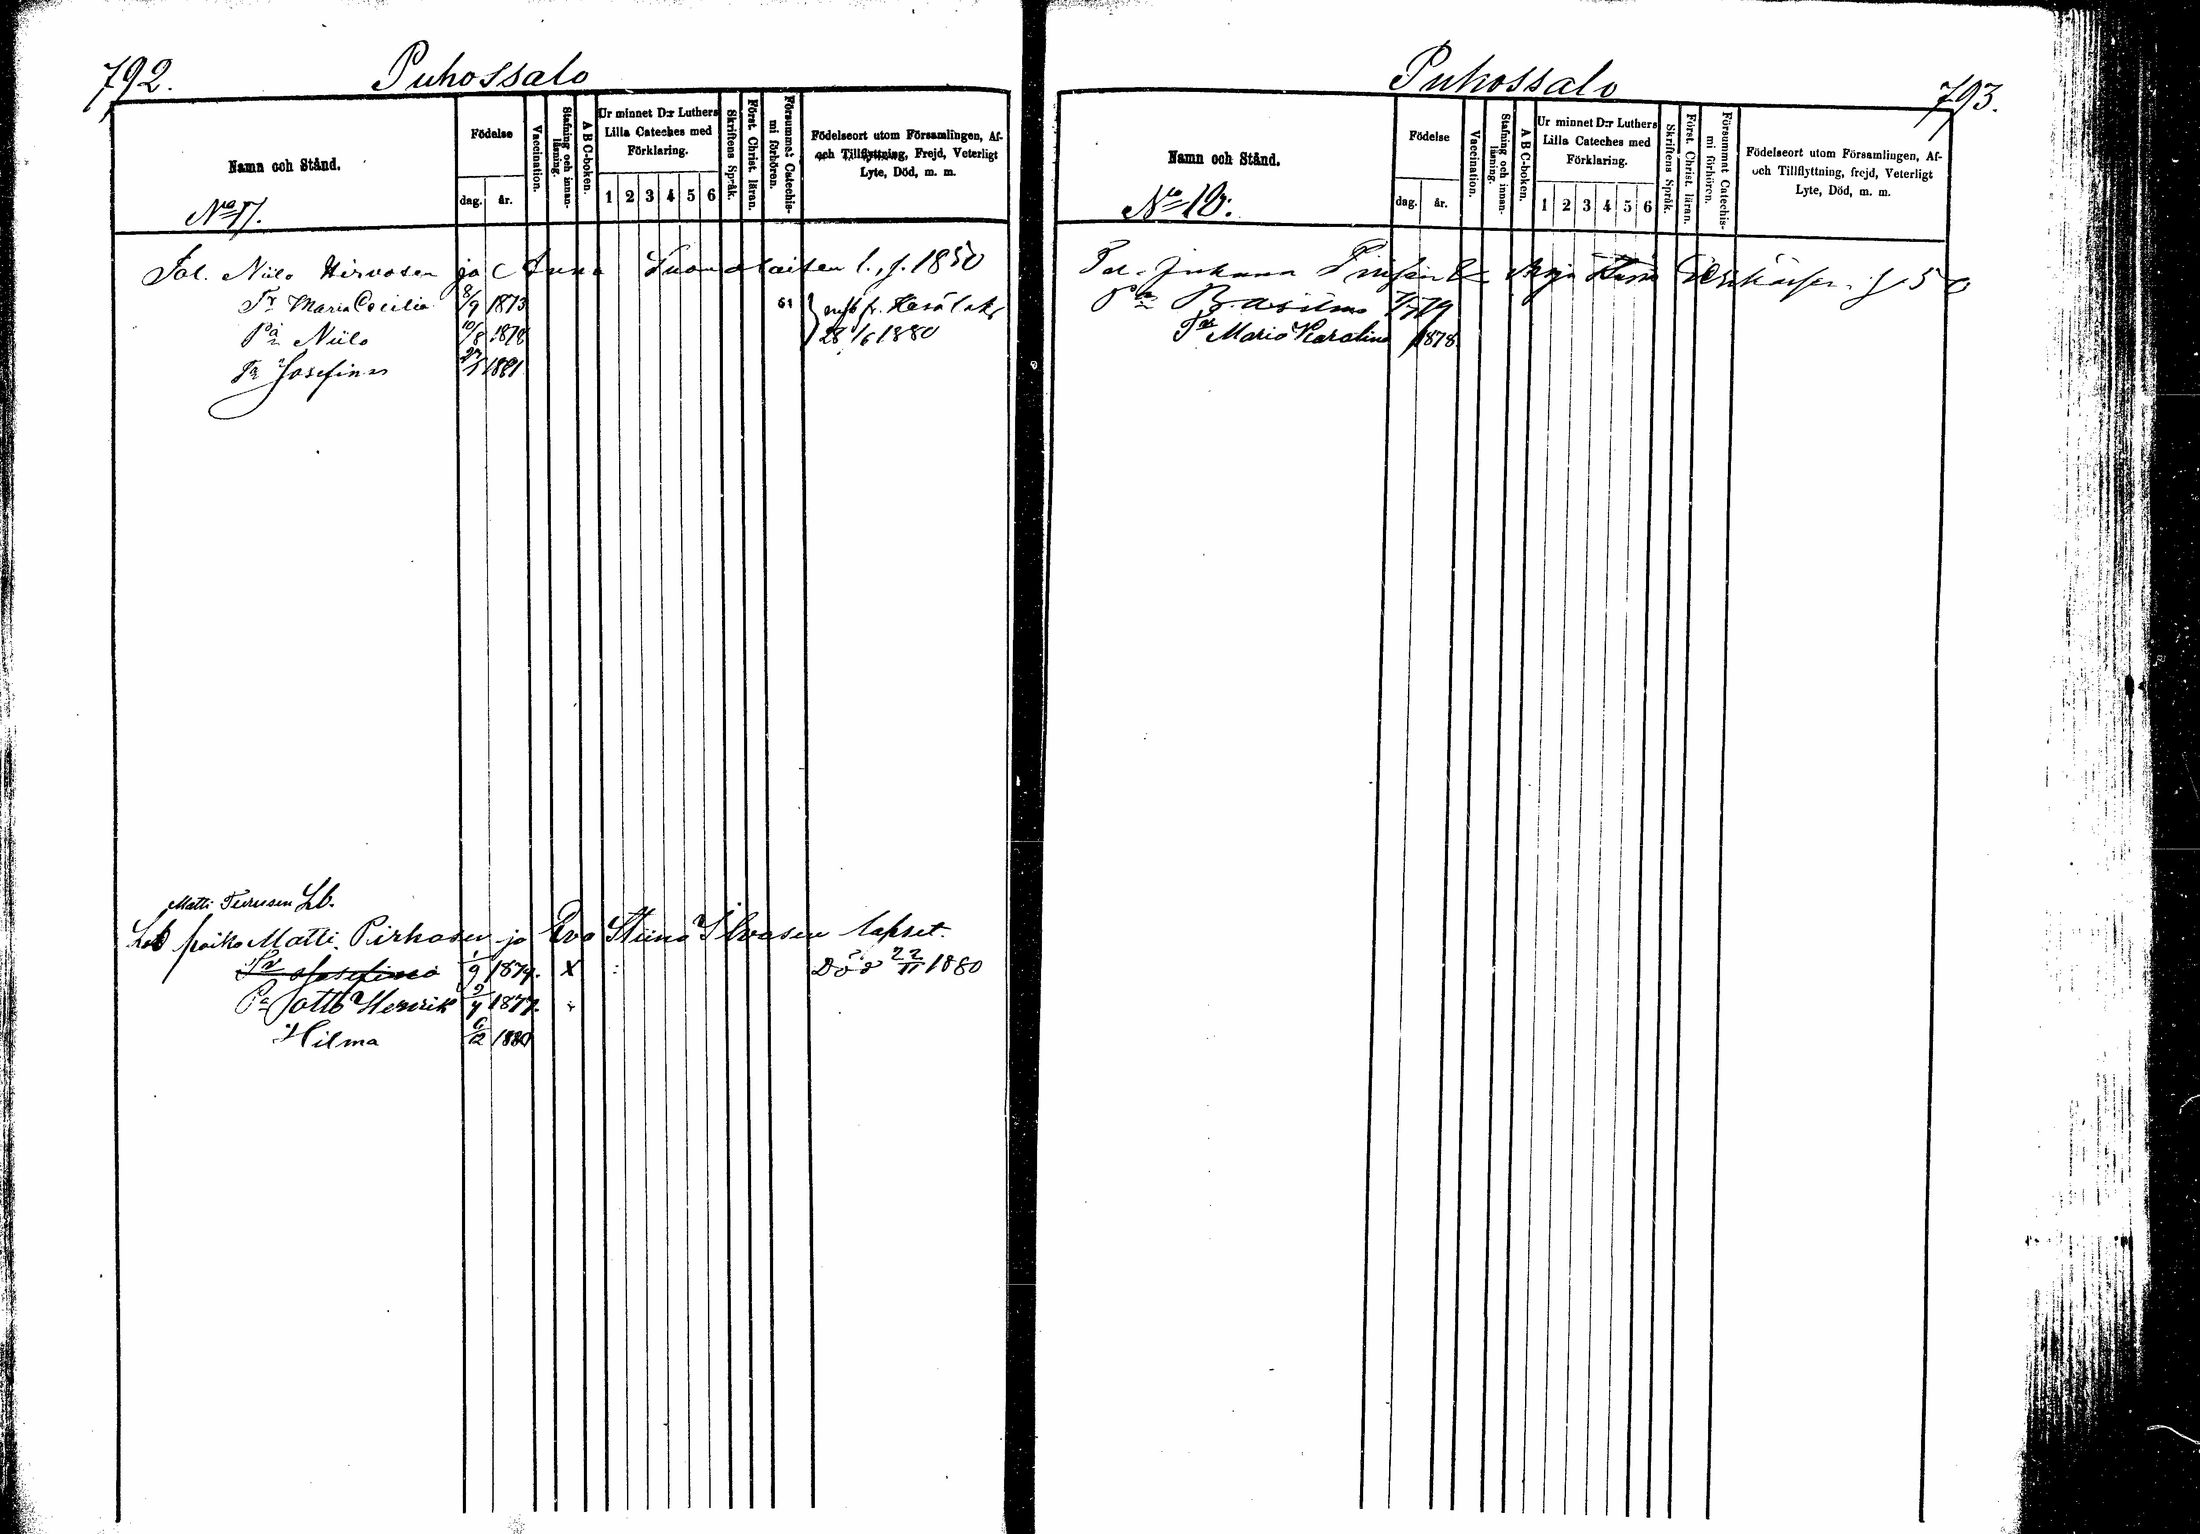 792.
Puhossalo
Namn och Stånd.
Födelse
dag.
år.
Vaccination.
Stafning och innan-
läsning.
A B C-boken.
Ur minnet D:r Luthers
Lilla Cateches med
Förklaring.
1 2 3 4 5 6
Skriftens Språk.
Först. Christ. läran.
Försummat Catechis-
mi förhören.
Födelseort utom Församlingen, Af-
och Tillflyttning, Frejd, Veterligt
Lyte, Död, m. m.
No 17.
Tal. Niilo Hirvosen ja Anna Suomalaisen l., f. 1850
Tr Maria Cecilia 8/9 1873 61
Pa Niilo 10/8 1878 28/6 1880
Tr Josefina 1881
Matti Teerusen Lb.
poika Matti Pirhosen ja Eva Stiina Ilvosen lapset.
Tr Josefina 1/9 1874. X Död 22/11 1880
Pa Otto Henrik 9/4 1877.
Hilma 6/12 1880
Puhossalo
793.
Namn och Stånd.
Födelse
dag.
år.
Vaccination.
Stafning och innan-
läsning.
A B C-boken.
Ur minnet D:r Luthers
Lilla Cateches med
Förklaring.
1 2 3 4 5 6
Skriftens Språk.
Först. Christ. läran.
Försummat Catechis-
mi förhören.
Födelseort utom Församlingen, Af-
och Tillflyttning, frejd, Veterligt
Lyte, Död, m. m.
No 18.
Tal. Juhana Maja f 50
Pa 79
Tr Maria Karolina 1878